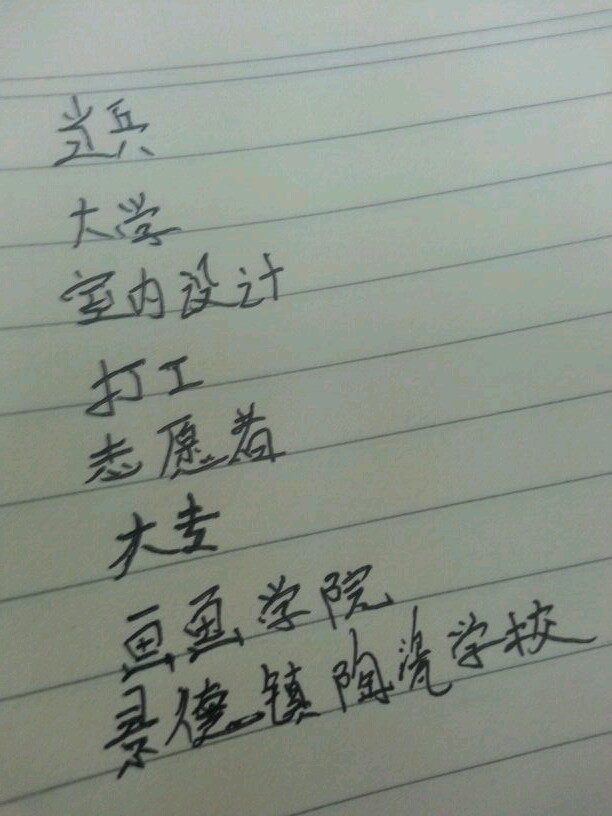 当兵
大学
室内设计
打工
志愿者
大专
学院
景德镇陶瓷学校